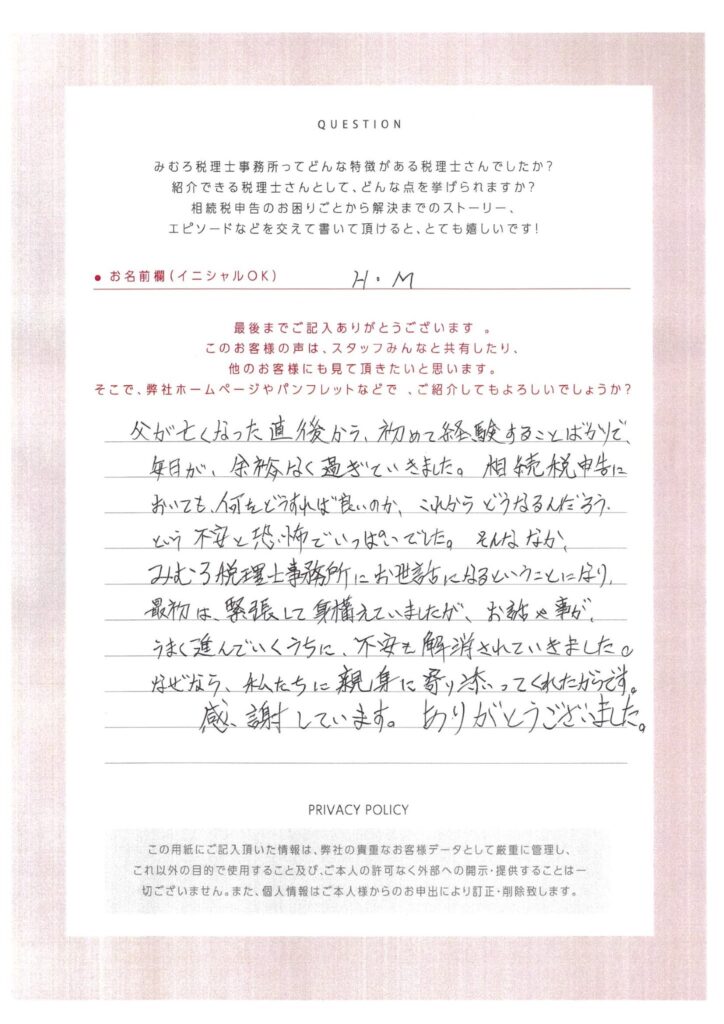 QUESTION
みむろ税理士事務所ってどんな特徴がある税理士さんでしたか?
紹介できる税理士さんとして、どんな点を挙げられますか?
相続税申告のお困りごとから解決までのストーリー、
エピソードなどを交えて書いて頂けると、とても嬉しいです!
● お名前欄(イニシャルOK) H・M
最後までご記入ありがとうございます 。
このお客様の声は、スタッフみんなと共有したり、
他のお客様にも見て頂きたいと思います。
そこで、弊社ホームページやパンフレットなどで 、ご紹介してもよろしいでしょうか?
父が亡くなった直後から、初めて経験することばかりで、
毎日が、余裕なく過ぎていきました。相続税申告に
おいても、何をどうすれば良いのか、これからどうなるんだろう、
という不安と恐怖でいっぱいでした。そんななか、
みむろ税理士事務所にお世話になるということになり、
最初は、緊張して身構えていましたが、お話や事が、
うまく進んでいくうちに、不安も解消されていきました。
なぜなら、私たちに親身に寄り添ってくれたからです。
感謝しています。ありがとうございました。
PRIVACY POLICY
この用紙にご記入頂いた情報は、弊社の貴重なお客様データとして厳重に管理し、
これ以外の目的で使用すること及び、ご本人の許可なく外部への開示・提供することは一
切ございません。また、個人情報はご本人様からのお申出により訂正・削除致します。